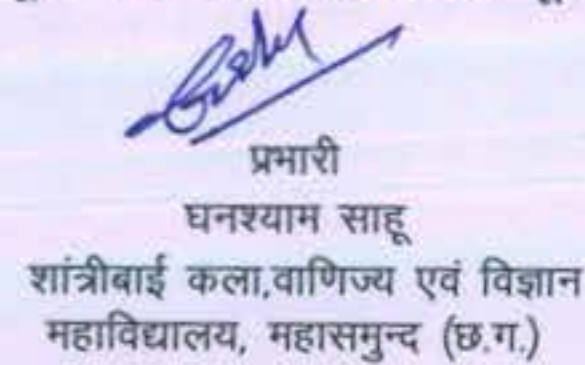 प्रभारी
घनश्याम साहू
शांत्रीबाई कला,वाणिज्य एवं विज्ञान
महाविद्यालय, महासमुन्द (छ.ग.)